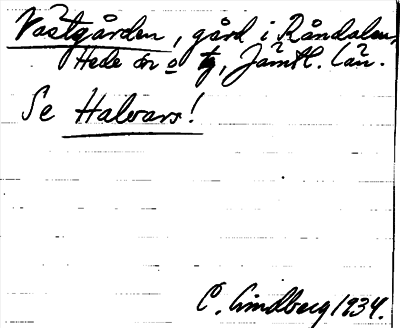 Västgården, gård i Råndalen,
Hede sn o tg, Jämtl. län.
Se Halvars!
C. Lindberg 1934.